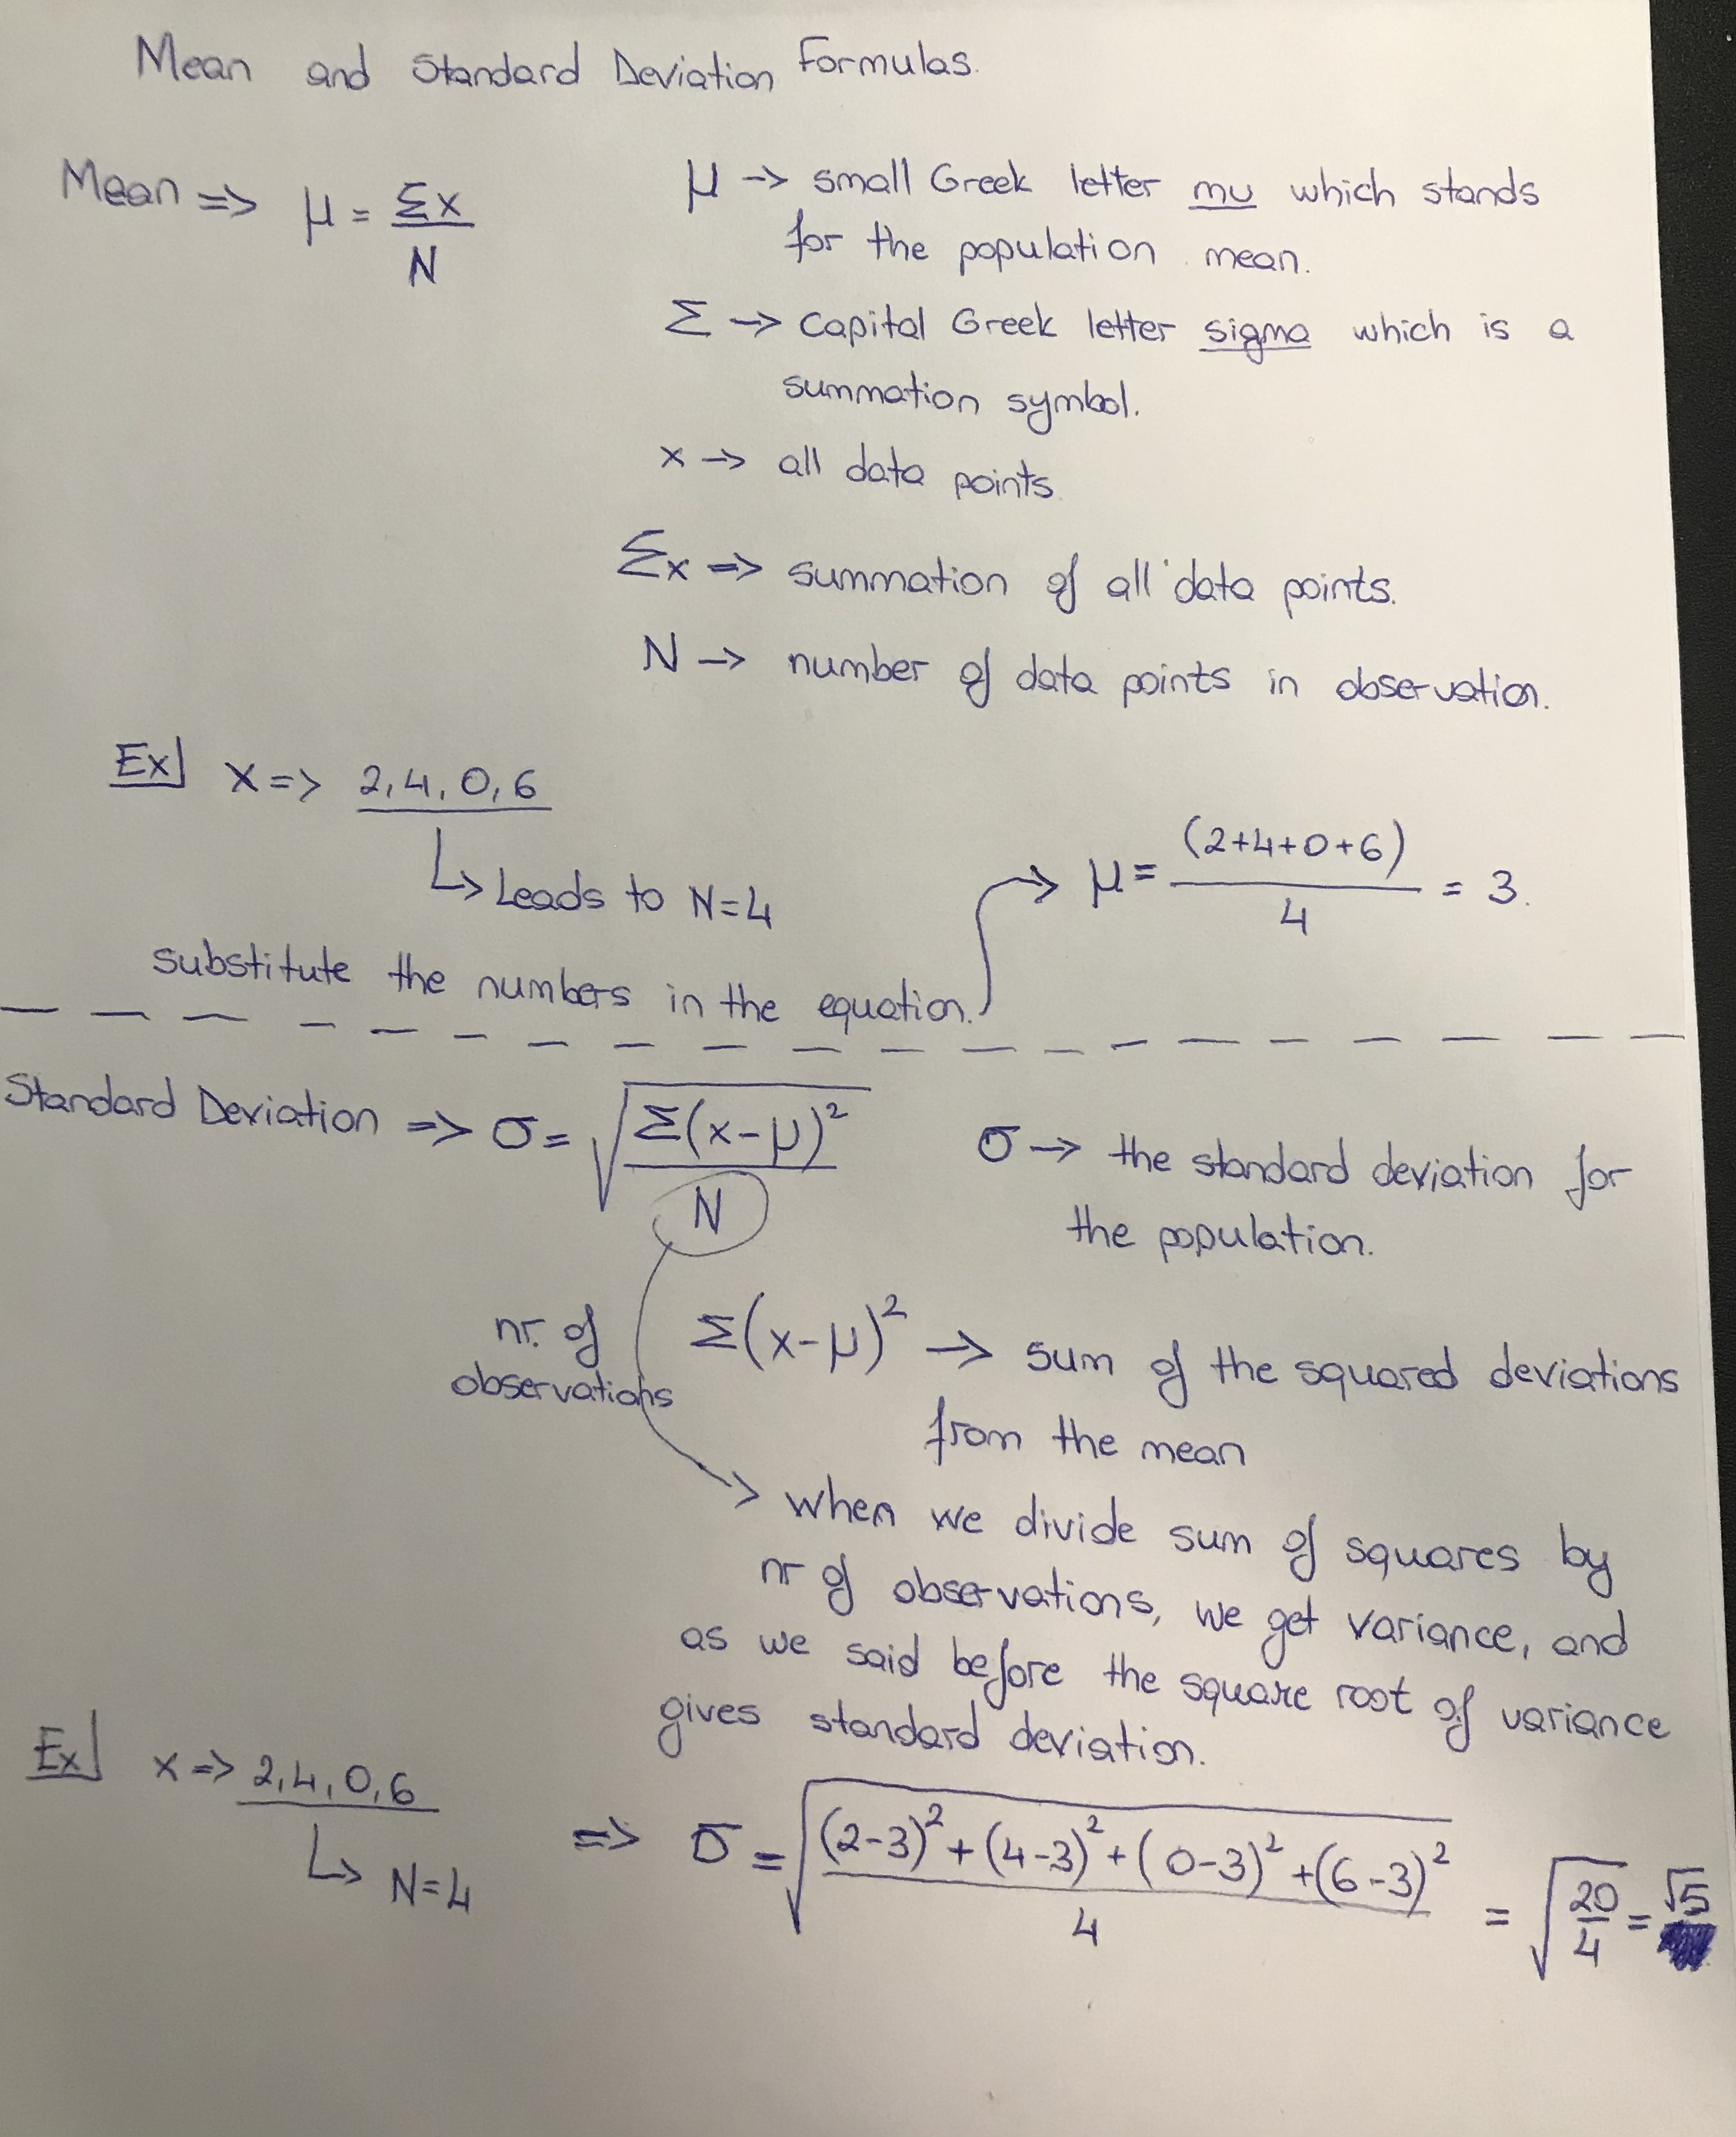 Mean and Standard Deviation Formulas.
Mean => μ = Σx / N
μ -> small Greek letter mu which stands
for the population mean.
Σ -> capital Greek letter sigma which is a
summation symbol.
x -> all data points.
Σx => summation of all data points.
N -> number of data points in observation.
Ex] x => 2, 4, 0, 6
↳ Leads to N=4
substitute the numbers in the equation.
-> μ = (2+4+0+6) / 4 = 3.
Standard Deviation => σ = √(Σ(x-μ)² / N)
σ -> the standard deviation for
the population.
nr. of
observations
Σ(x-μ)² -> sum of the squared deviations
from the mean
-> when we divide sum of squares by
nr of observations, we get variance, and
as we said before the square root of variance
gives standard deviation.
Ex] x => 2, 4, 0, 6
↳ N=4
=> σ = √(((2-3)² + (4-3)² + (0-3)² + (6-3)²) / 4) = √(20/4) = √5